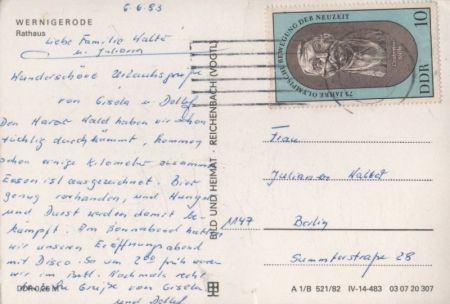 6.6.83
WERNIGERODE
Rathaus
Liebe Familie
u. Juliann
Wunderschöne Urlaubsgrüße
von Gisela u. Detlef
Den Harzer Wald haben wir schon
tüchtig durchkämmt, kommen
schon einige Kilometer zusammen
Essen ist ausgezeichnet. Bier
genug vorhanden, und Hunger
und Durst werden damit be-
kämpft. Am Sonnabend hatten
wir unseren Eröffnungsabend
mit Disco. So um 2.00 früh waren
wir im Bett. Nochmals recht
Grüße von Gisela
und Detlef
DDR 0,26 M
BILD UND HEIMAT · REICHENBACH (VOGTL)
75 JAHRE OLYMPISCHE BEWEGUNG DER NEUZEIT
DDR 10
Frau
1147
Berlin
28
A 1/B 521/82 IV-14-483 03 07 20 307